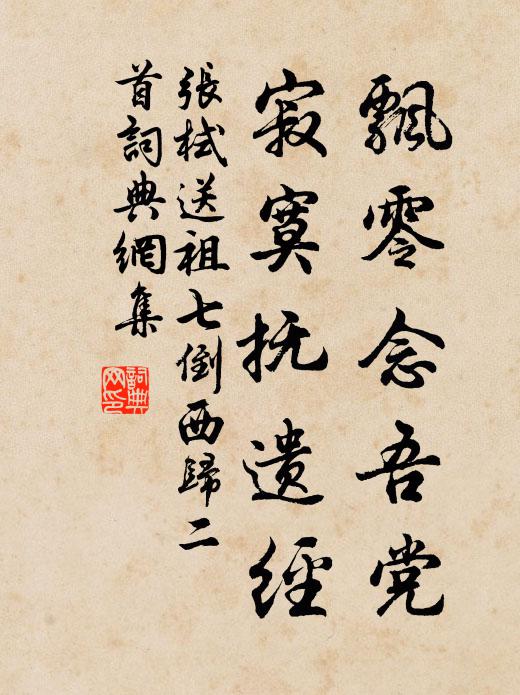 飄零念吾党
寂寞抚遗經
張栻送祖七倒西歸二
首詞典網集
詞典
网印